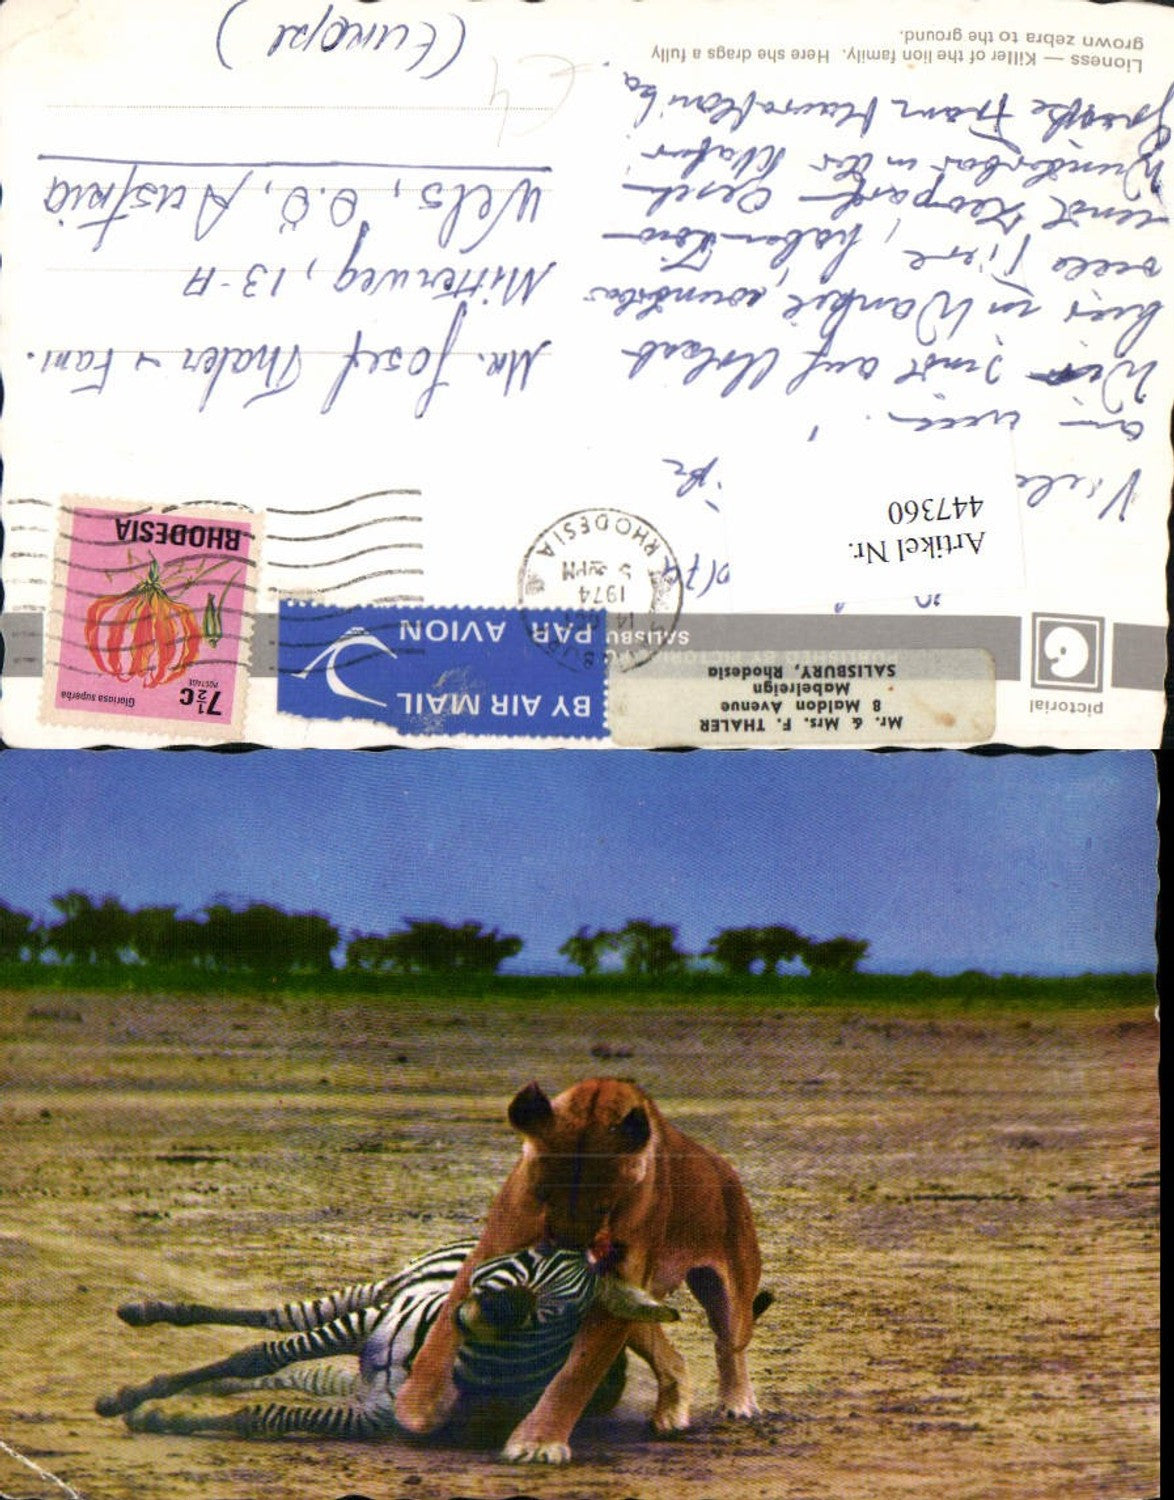 Lioness — Killer of the lion family. Here she drags a fully
grown zebra to the ground.
(Europe)
Wels, O.Ö, Austria
Mitterweg, 13-A
Mr. Josef Thaler + Fam.
Wir sind auf Urlaub
hier in Wankie, wunderbar
viele Tiere, haben Löw
und Leopard
Wunderbar in der Natur
Viele
Artikel Nr.
447360
RHODESIA
7½c
POSTAGE
Gloriosa superba
BY AIR MAIL
PAR AVION
RHODESIA
14 OCT
1974
5 PM
Mr. & Mrs. F. THALER
8 Maldon Avenue
Mabelreign
SALISBURY, Rhodesia
pictorial
PUBLISHED BY PICTORIAL
SALISBU